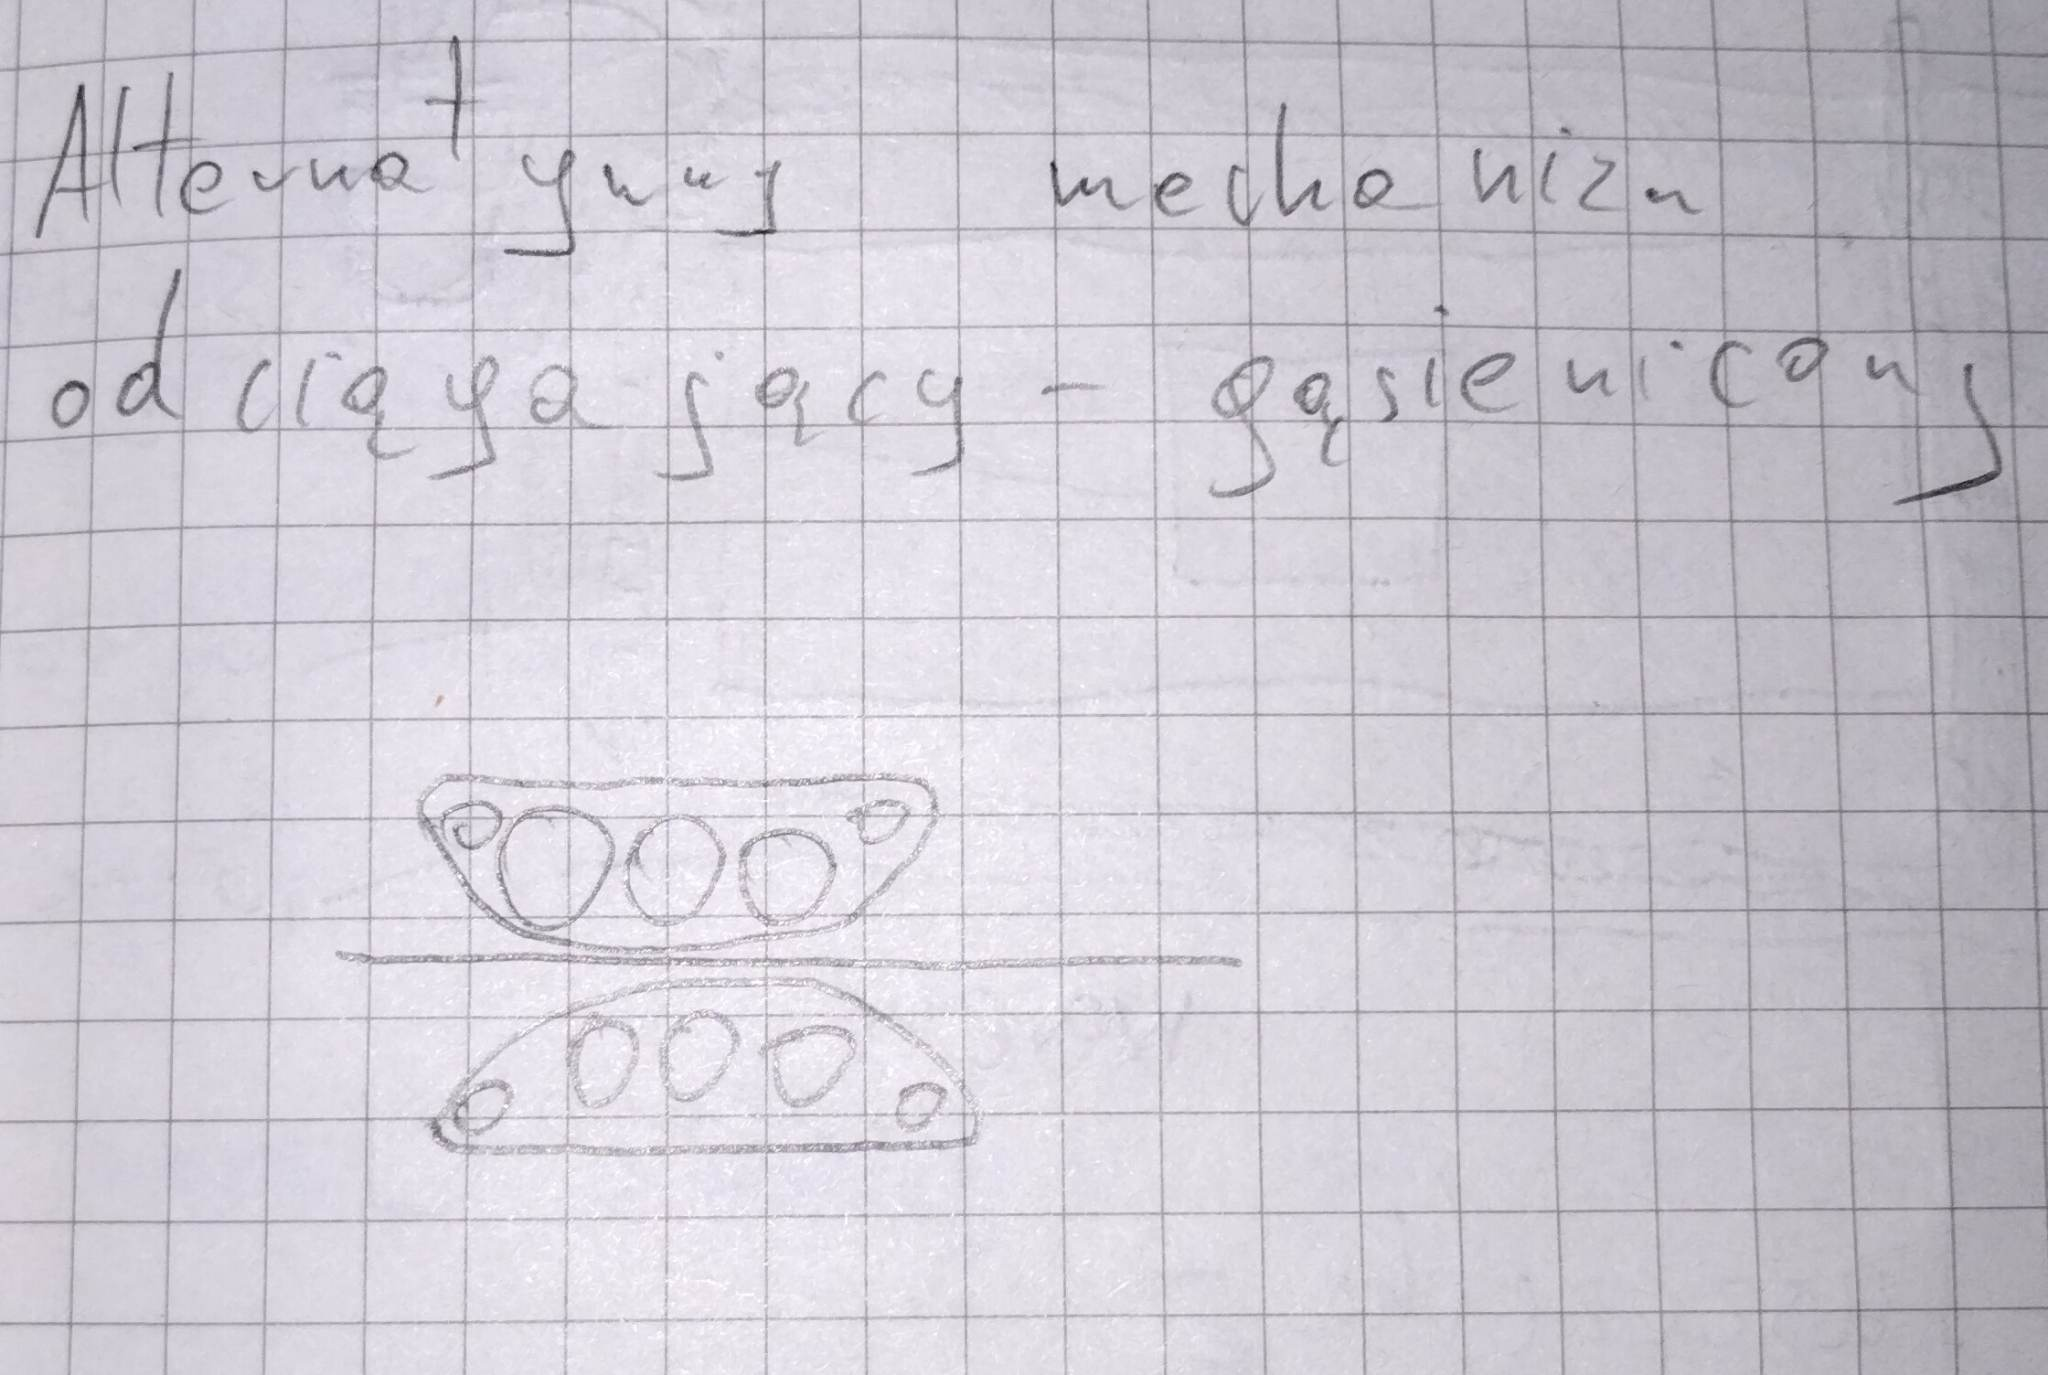 Alternatynny mechanizm
odciągający - gąsienicowy